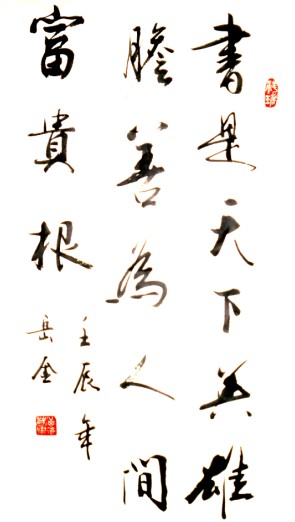 書是天下英雄
膽善為人間
富貴根
壬辰年
岳金